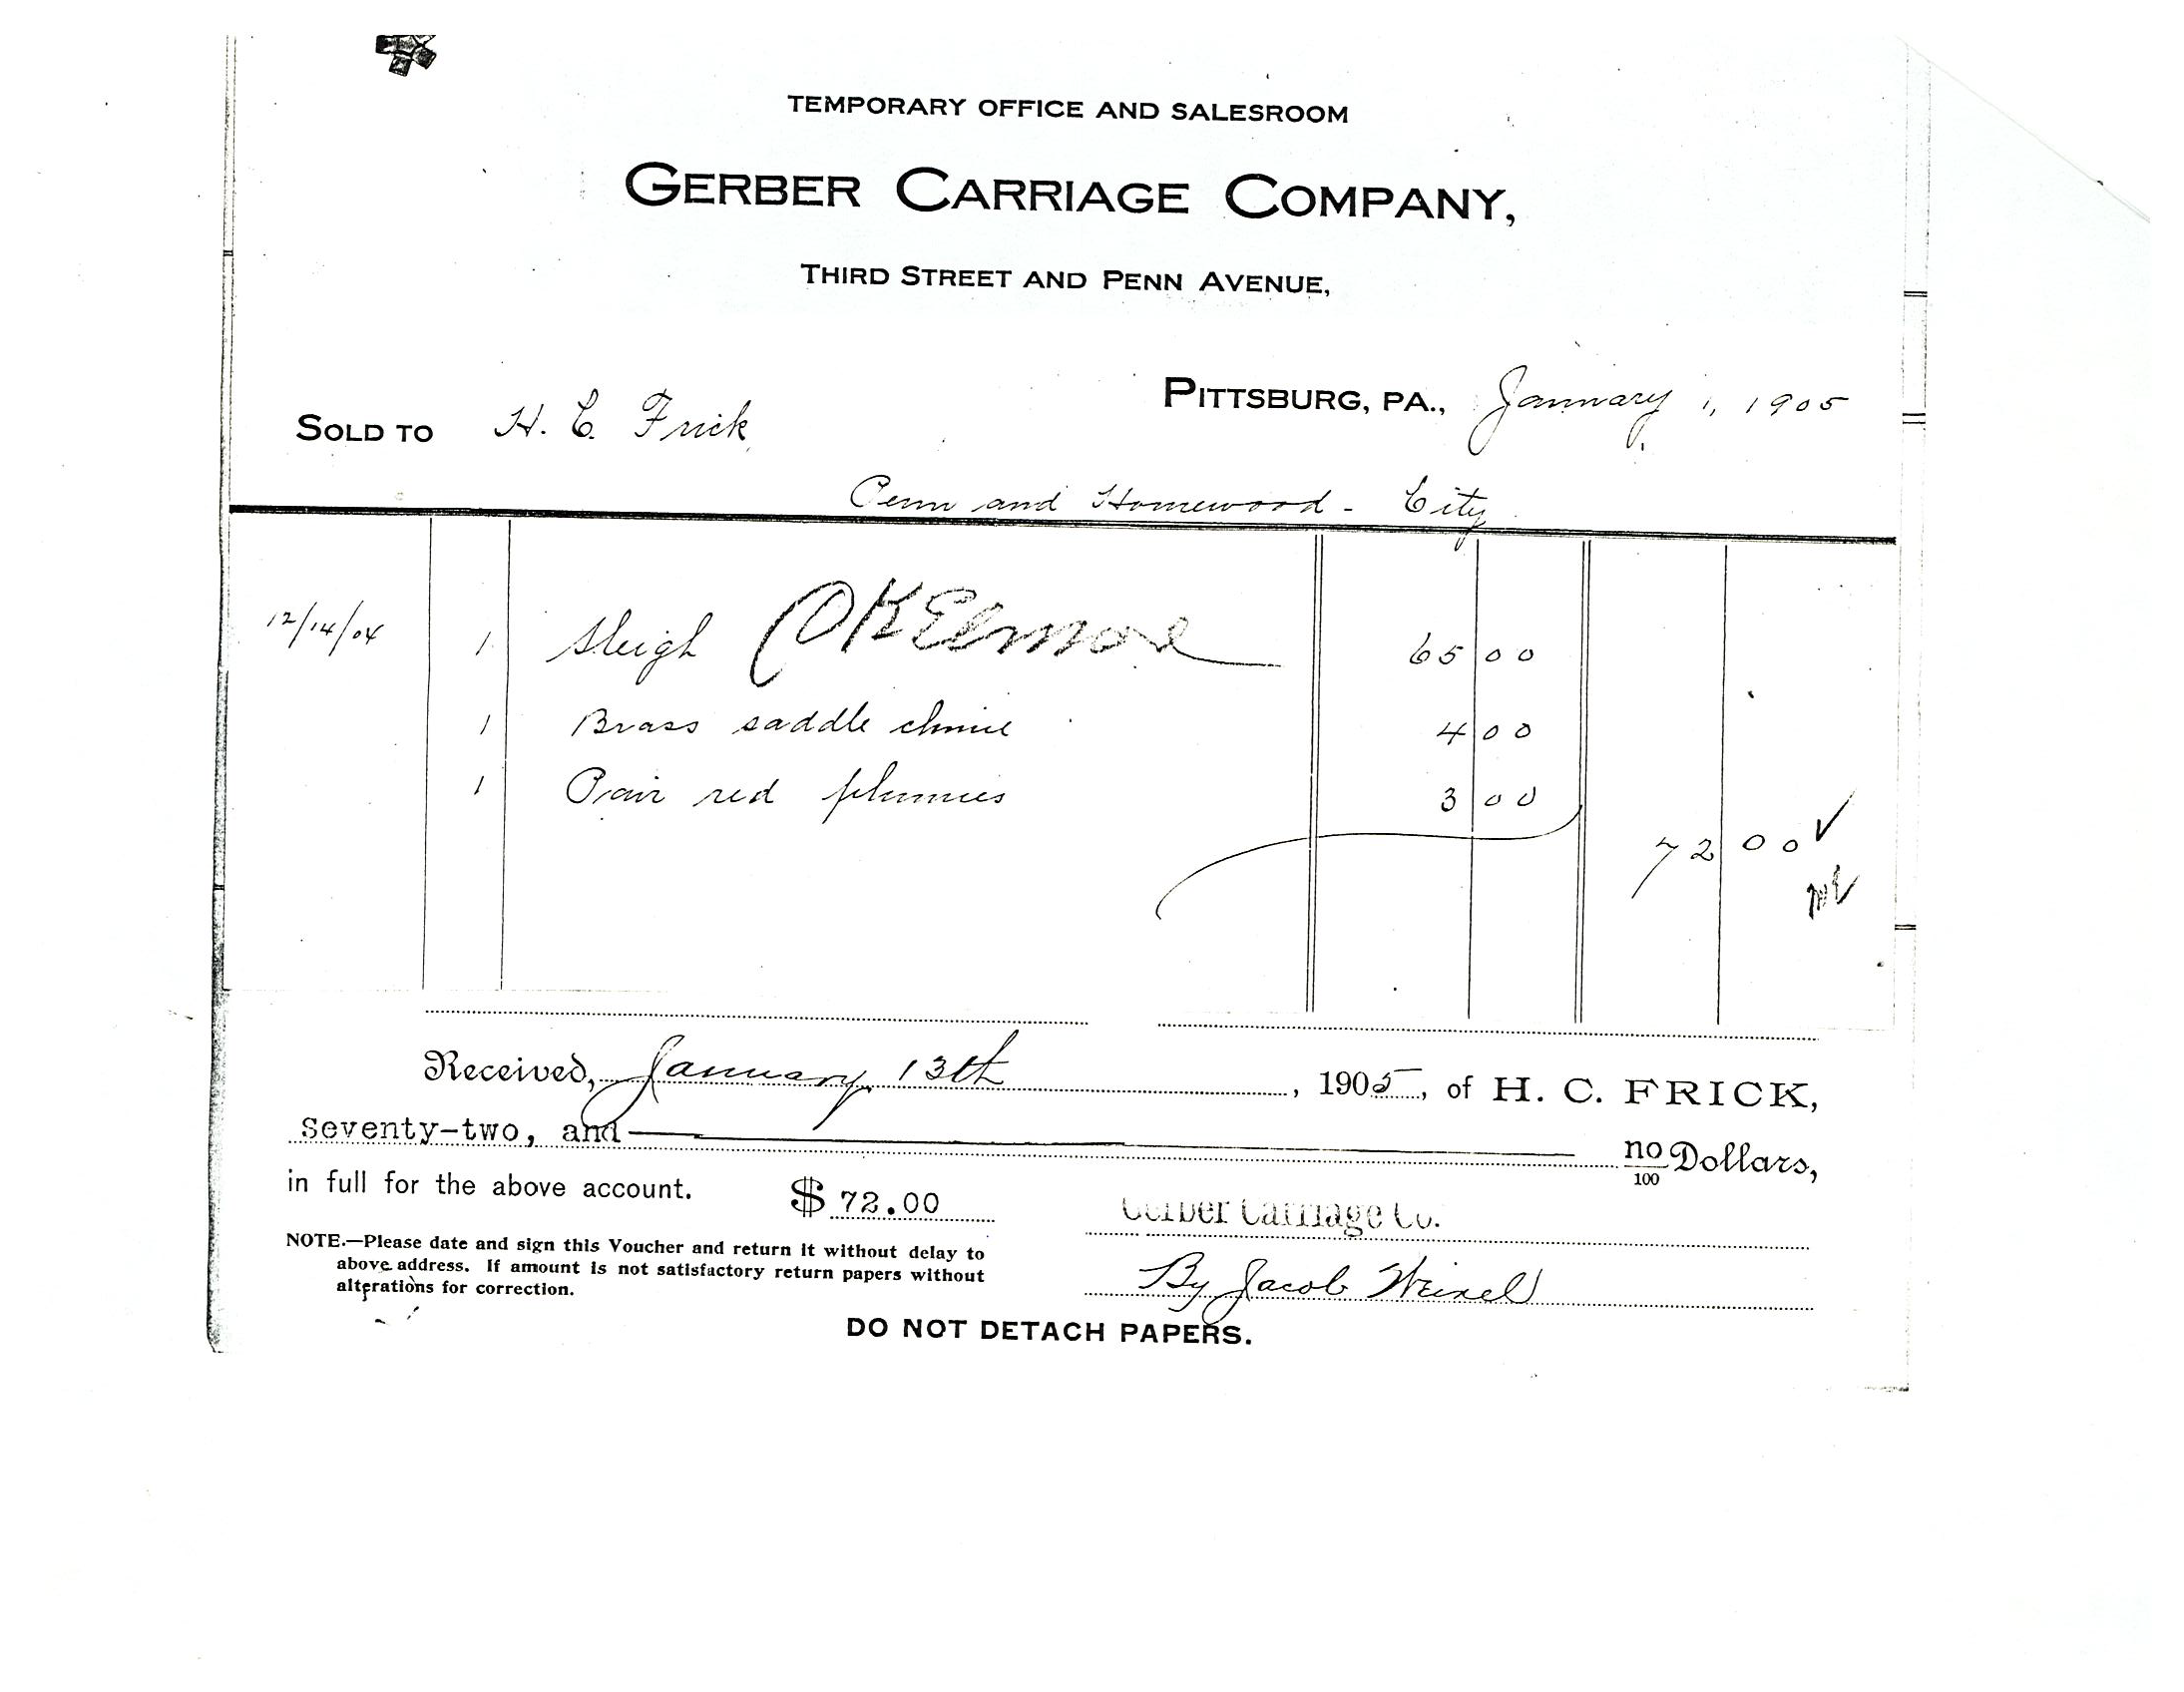 TEMPORARY OFFICE AND SALESROOM
GERBER CARRIAGE COMPANY,
THIRD STREET AND PENN AVENUE,
PITTSBURG, PA., January 1, 1905
SOLD TO H. C. Frick
Penn and Homewood - City
12/14/04 1 Sleigh OK Elmore 65 00
1 Brass saddle chime 4 00
1 Pair red plumes 3 00
72 00 ✓
Received, January 13th, 1905, of H. C. FRICK,
Seventy-two, and no/100 Dollars,
in full for the above account. $ 72.00
Gerber Carriage Co.
NOTE.—Please date and sign this Voucher and return it without delay to
above address. If amount is not satisfactory return papers without
alterations for correction.
By Jacob Weixel
DO NOT DETACH PAPERS.